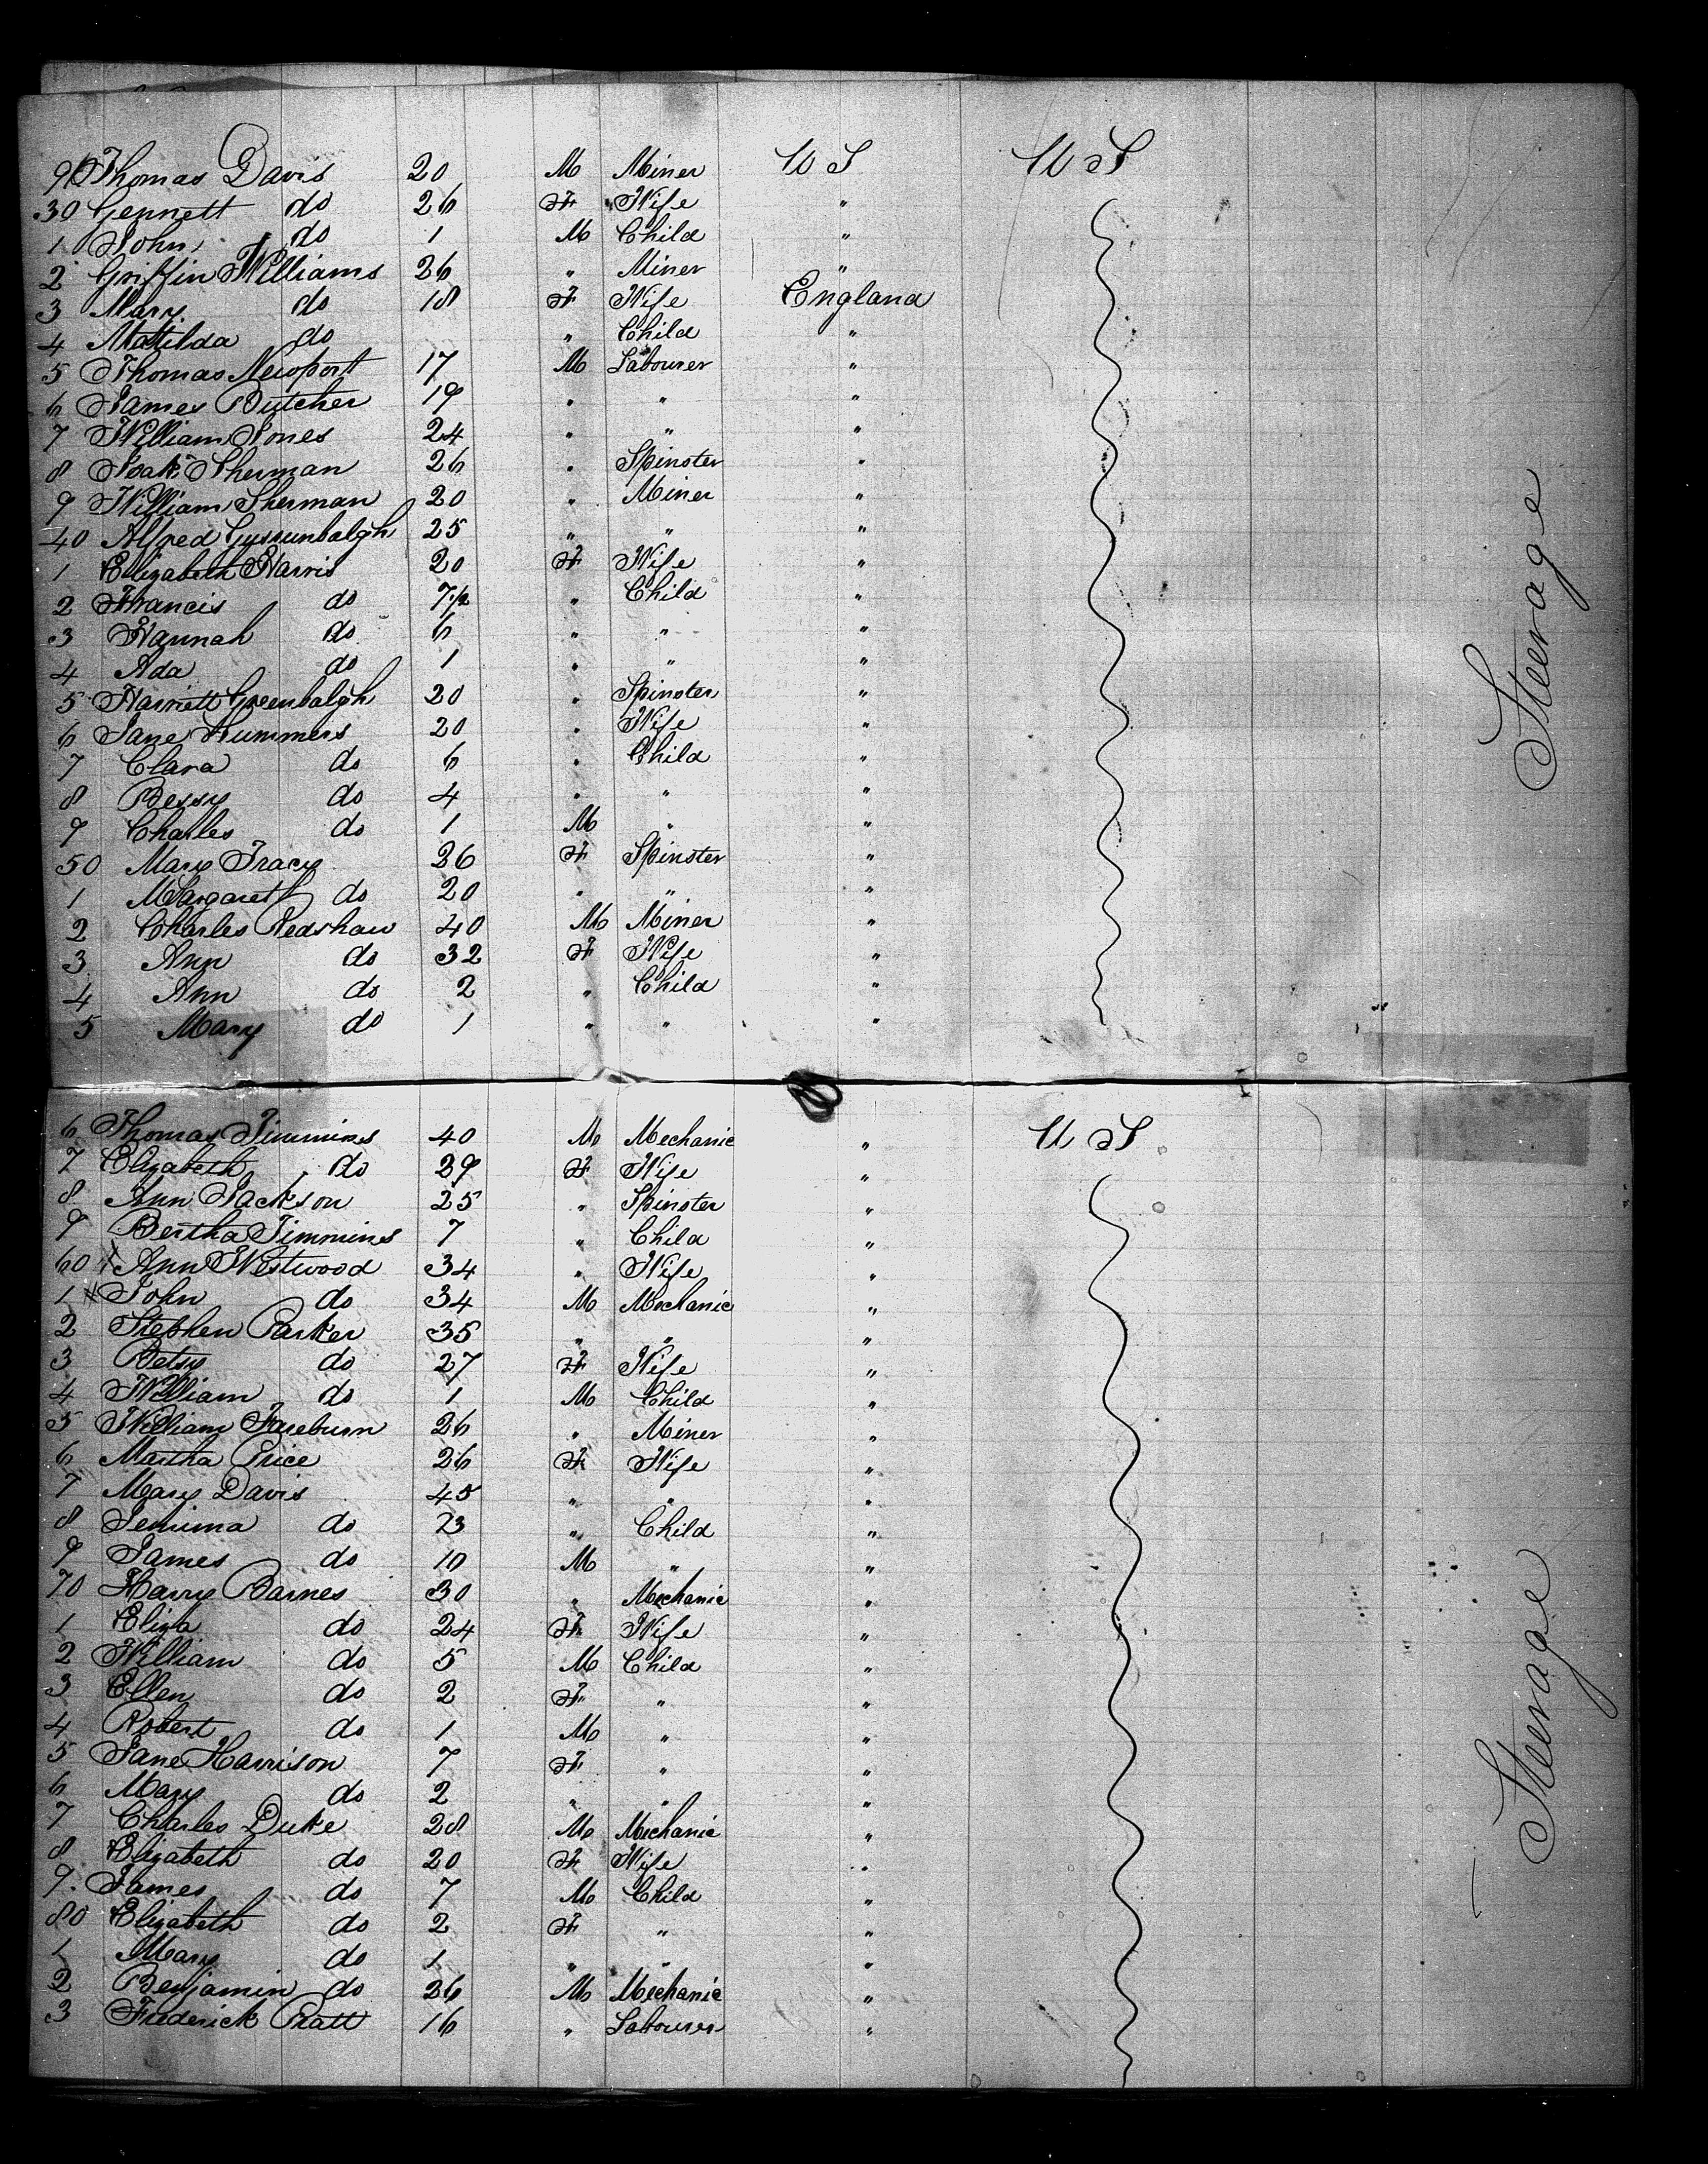 9 Thomas Davis 20 M Miner U S U S
30 Gennett do 26 F Wife "
1 John do 1 M Child "
2 Griffin Williams 26 " Miner "
3 Mary do 18 F Wife England
4 Matilda do " Child "
5 Thomas Newport 17 M Labourer "
6 James Butcher 19 " " "
7 William Jones 24 " " "
8 Sherman 26 " Spinster "
9 William Sherman 20 " Miner "
40 Alfred 25 " " "
1 Elizabeth Harris 20 F Wife "
2 Francis do 7 1/2 " Child "
3 Hannah do 6 " " "
4 Ada do 1 " " "
5 Harriett Greenhalgh 20 " Spinster "
6 Jane Hummers 20 " Wife "
7 Clara do 6 " Child "
8 Bessy do 4 " " "
9 Charles do 1 M " "
50 Mary Tracy 26 F Spinster "
1 Margaret do 20 " " "
2 Charles Redshaw 40 M Miner "
3 Ann do 32 F Wife "
4 Ann do 2 " Child "
5 Mary do 1 " " "
Steerage
6 Thomas Timmins 40 M Mechanic " U S
7 Elizabeth do 29 F Wife "
8 Ann Jackson 25 " Spinster "
9 Bertha Timmins 7 " Child "
60 x Ann Westwood 34 " Wife "
1 John do 34 M Mechanic "
2 Stephen Parker 35 " " "
3 Betsy do 27 F Wife "
4 William do 1 M Child "
5 William Fareburn 26 " Miner "
6 Martha Price 26 F Wife "
7 Mary Davis 45 " " "
8 Jemima do 23 " Child "
9 James do 10 M " "
70 Harry Barnes 30 " Mechanic "
1 Eliza do 24 F Wife "
2 William do 5 M Child "
3 Ellen do 2 F " "
4 Robert do 1 M " "
5 Jane Harrison 7 F " "
6 Mary do 2 " " "
7 Charles Duke 28 M Mechanic "
8 Elizabeth do 20 F Wife "
9. James do 7 M Child "
80 Elizabeth do 2 F " "
1 Mary do 1 " " "
2 Benjamin do 26 M Mechanic "
3 Frederick Pratt 16 " Labourer "
Steerage